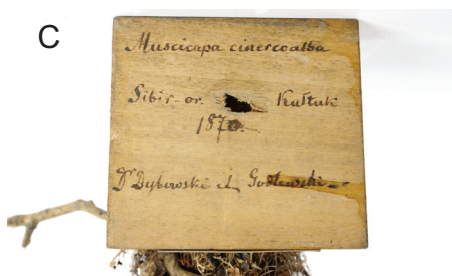 C
Muscicapa cinereoalba
Sibir-or. Kułtuk
1870.
Dr Dybowski et Godlewski